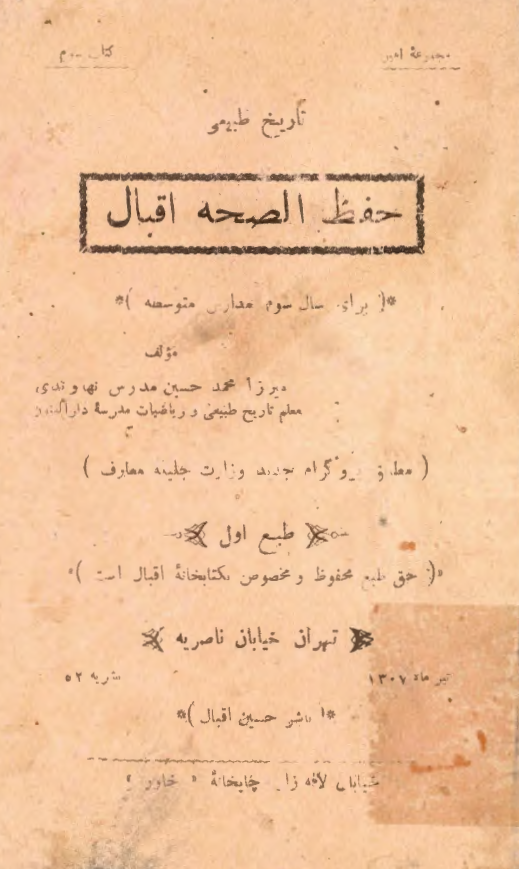 مجموعهٔ امیر
کتاب سوم
تاریخ طبیعی
حفظ الصحه اقبال
*( برای سال سوم مدارس متوسطه )*
مؤلف
میرزا محمد حسین مدرس نهاوندی
معلم تاریخ طبیعی و ریاضیات مدرسهٔ دارالفنون
( مطابق پروگرام جدید وزارت جلیله معارف )
طبع اول
«( حق طبع محفوظ و مخصوص بکتابخانهٔ اقبال است )»
تهران خیابان ناصریه
تیر ماه ۱۳۰۷
نشریه ۵۲
*( ناشر حسین اقبال )*
خیابان لاله زار چاپخانهٔ « خاور »